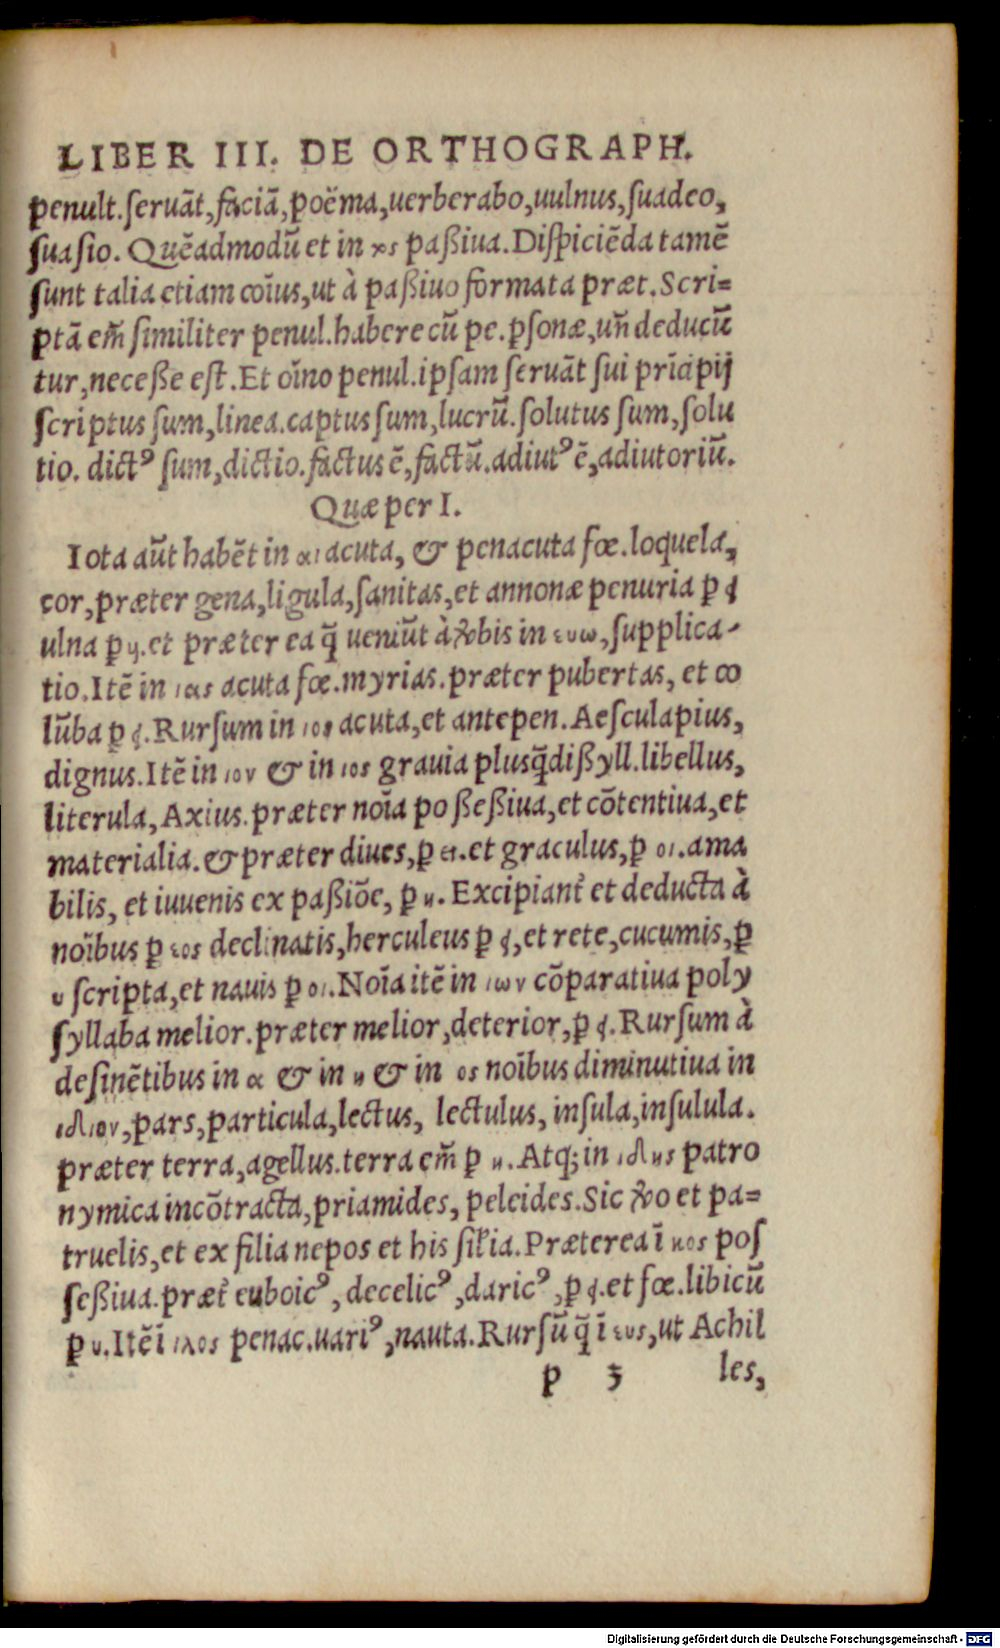 LIBER III. DE ORTHOGRAPH.
penult.ſeruãt,faciã,poëma,uerberabo,uulnus,ſuadeo,
ſuaſio. Quẽadmodũ et in κς paßiua.Diſpiciẽda tamẽ
ſunt talia etiam coĩus,ut à paßiuo formata præt.Scri=
ptã em̃ ſimiliter penul.habere cũ pe.ꝑſonæ,uñ deducũ
tur,neceße eſt.Et oĩno penul.ipſam ſeruãt ſui prĩcipij
ſcriptus ſum,linea.captus ſum,lucrũ.ſolutus ſum,ſolu
tio. dictꝰ ſum,dictio.factus ẽ,factũ.adiutꝰ ẽ,adiutoriũ.
Quæ per I.
Iota aũt habẽt in αι acuta, & penacuta fœ.loquela,
cor,præter gena,ligula,ſanitas,et annonæ penuria ꝑ ει
ulna ꝑ η.et præter ea q̃ ueniũt à ỽbis in ευω,ſupplica-
tio.Itẽ in ιας acuta fœ.myrias.præter pubertas, et co
lũba ꝑ ει.Rurſum in ιος acuta,et antepen.Aeſculapius,
dignus.Itẽ in ιον & in ιος grauia plusq̃dißyll.libellus,
literula,Axius.præter noĩa poßeßiua,et cõtentiua,et
materialia.& præter diues,ꝑ ει.et graculus,ꝑ οι.ama
bilis, et iuuenis ex paßiõe, ꝑ η. Excipiant̃ et deducta à
noĩbus ꝑ εος declinatis,herculeus ꝑ ει,et rete,cucumis,ꝑ
υ ſcripta,et nauis ꝑ οι.Noĩa itẽ in ιων cõparatiua poly
ſyllaba melior.præter melior,deterior,ꝑ ει.Rurſum à
deſinẽtibus in α & in η & in ος noĩbus diminutiua in
ιδιον,pars,particula,lectus, lectulus, inſula,inſulula.
præter terra,agellus.terra em̃ ꝑ η.Atq; in ιδης patro
nymica incõtracta,priamides, peleides.Sic ỽo et pa=
truelis,et ex filia nepos et his ſiĩlia.Præterea ĩ κος poſ
ſeßiua.præt̃ euboicꝰ, decelicꝰ,daricꝰ,ꝑ ει.et fœ.libicũ
ꝑ υ.Itẽ ĩ ιλος penac.uariꝰ,nauta.Rurſũ q̃ ĩ ευς,ut Achil
p 3 les,
Digitalisierung gefördert durch die Deutsche Forschungsgemeinschaft - DFG